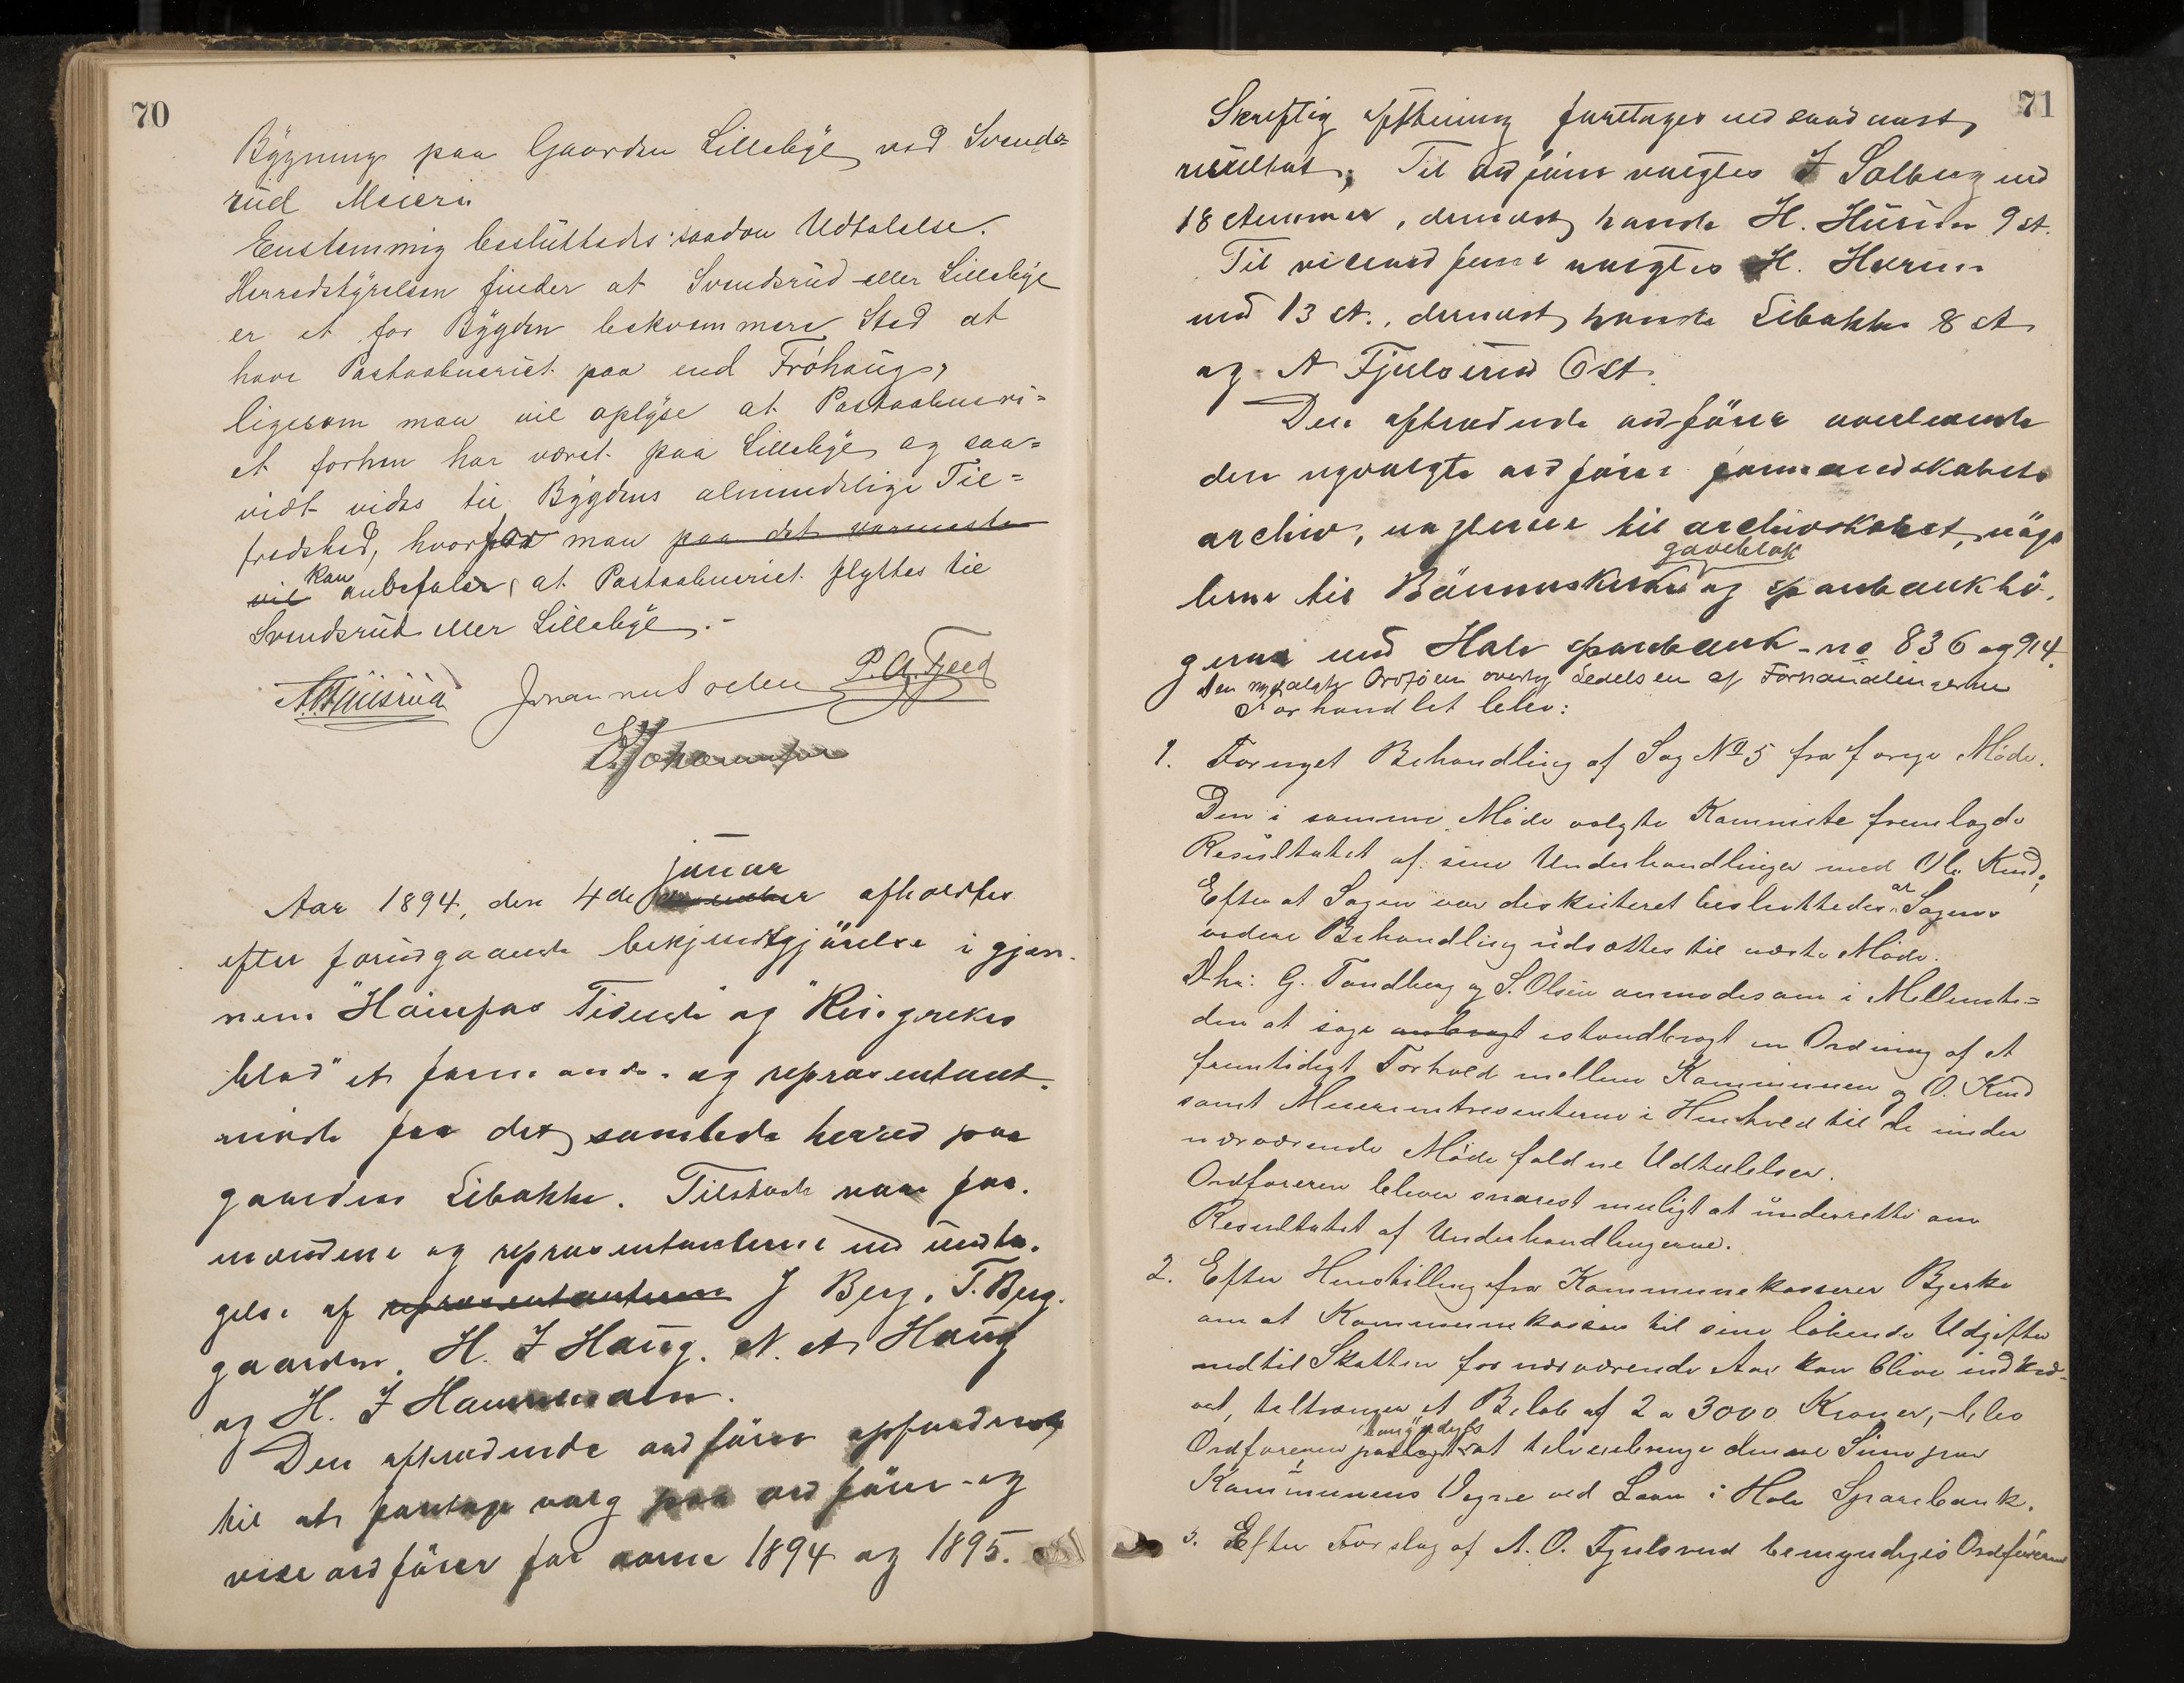 70
Bygning paa Gaarden Lillebye ved Svends=
rud Meieri
Enstemmig besluttedes saadan Udtalelse.
Herredstyrelsen finder at Svendsrud eller Lillebye
er et for Bygden bekvemmere Sted at
have Postaabneriet paa end Fröhaug,
ligesom man vil oplyse at Postaabneri=
et forhen har været paa Lillebye og saa=
vidt vides til Bygdens almindelige Til=
fredshed, hvorfor man paa det varmeste
vil kan anbefaler, at Postaabneriet flyttes til
Svendsrud eller Lillebye.-
Johannes Solen P. A. Fjeld
E. Johannesen
januar
Aar 1894, den 4de december afholdtes
efter forudgaaende bekjendtgjörelse i gjen-
nem "Hönefos Tidende" og "Ringerikes
blad" et formands- og representant-
möde for det samlede herred paa
gaarden Libakke. Tilstede var for-
mændene og representanterne med undta-
gelse af representanterne J Berg, T. Berg-
gaarden, H. J Haug. N. A. Haug
og H. J Hammeren.
Den aftrædende ordförer opfordrede
til at foretage valg paa ordförer og
vise ordförer for aarne 1894 og 1895.
71
Skriftlig afstemning foretages med saadant
resultat; Til ordförer valgtes J Solberg med
18 stemmer, dernæst havde H. 9 st.
Til viceordförer valgtes H. Horun
med 13 st., dernæst havde Libakke 8 st
og A Fjulsrud 6 st.
Den aftrædende ordförer overleverte
den nyvalgte ordförer formandskabets
archiv, nöglerne til archivskabet, nög-
lerne til Bönsneskirke gaveblok og sparebankbö-
gerne med Hole sparebank no 836 og 914.
Den nyvalgte Ordförer overtog Ledelsen af Forhandlingerne
Forhandlet blev:
1. Fornyet Behandling af Sag No 5 fra forrige Möde.
Den i samme Möde valgte Kommite fremlagde
Resultatet af sine Underhandlinger med Ole Kind;
Efter at Sagen var diskuteret besluttedes at Sagens
videre Behandling udsættes til næste Möde.
D'hr: G. Tandberg og S. Olsen anmodes om i Mellemti=
den at söge anbragt istandbragt en Ordning af et
fremtidigt Forhold mellem Kommunen og O. Kind
samt Meieriintressenterne i Henhold til de under
nærværende Möde faldne Udtalelser.
Ordföreren bliver snarest muligt at underrette om
Resultatet af Underhandlingerne.
2. Efter Henstilling fra Kommunekasserer Bjerke
om at Kommunekassen til sine löbende Udgifter
indtil Skatten for nærværende Aar kan blive indkræ-
vet, tiltrænger et Belöb af 2 a 3000 Kroner, blev
Ordföreren paalagt bemyndiget at tilveiebringe denne Sum paa
Kommunens Vegne ved Laan i Hole Sparebank.
3. Efter Forslag af A. O. Fjulsrud bemyndiges Ordföreren